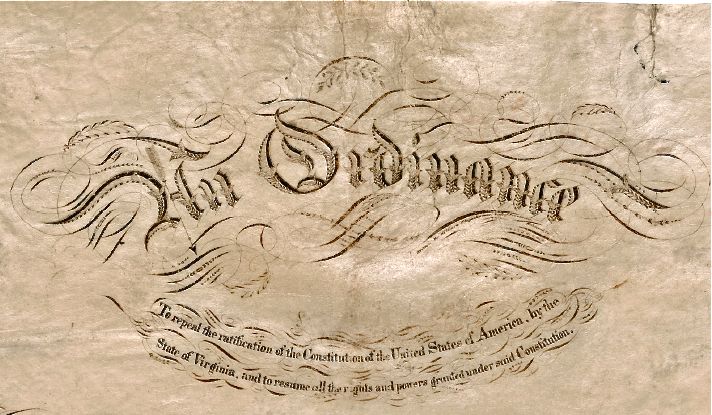 An Ordinance
To repeal the ratification of the Constitution of the United States of America, by the
State of Virginia, and to resume all the rights and powers granted under said Constitution.